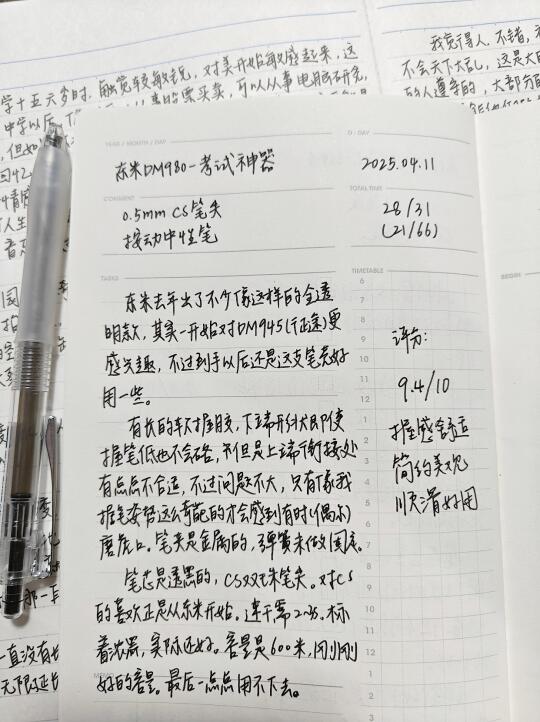 我觉得人不错，
学十五六岁时，触觉较敏锐，对美开始敏感起来，这
不会天下大乱，这是大
中学以后
的人遵守的，大部分
YEAR / MONTH / DAY
D - DAY
东米DM980-考试神器
2025.04.11
COMMENT
TOTAL TIME
0.5mm CS笔尖
28/31
按动中性笔
(21/66)
TASKS
TIMETABLE
BEGIN
东米去年出了不少像这样的全透
明款，其实一开始对DM945(征途)更
感兴趣，不过到手以后还是这支笔更好
用一些。
有长的软握胶，下端开纹大即使
握笔低也不会硌，但是上端衔接处
有点点不合适，不过问题不大，只有像我
握笔姿势这么奇葩的才会感到有时(偶尔)
磨虎口。笔夹是金属的，弹簧未做固定。
笔芯是透黑的，CS双珠笔尖。对CS
的喜欢正是从东米开始。速干需2~3s。标
着浓黑，实际还好。容量是600米，刚刚
好的容量。最后一点点用不下去。
评分：
9.4/10
握感舒适
简约美观
顺滑好用
6
7
8
9
10
11
12
1
2
3
4
5
6
7
8
9
10
11
12
1
2
3
一直没有
无限延长